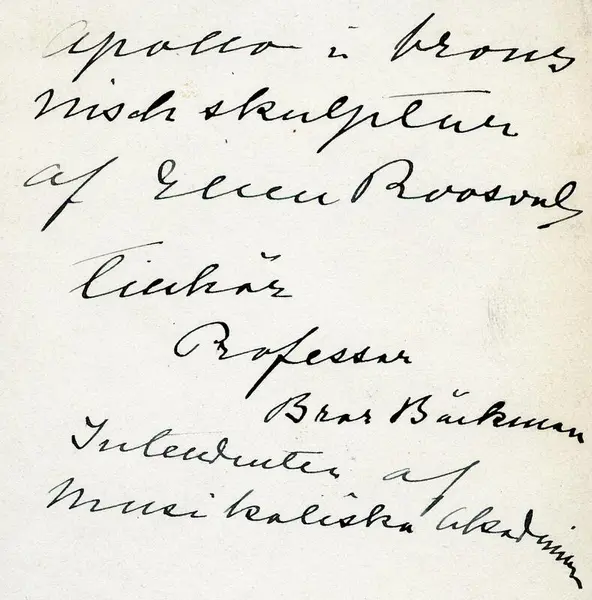 Apollo i brons
Nisch skulptur
af Ellen Roosval
tillhör
Professor
Bror Bäckman
Intendenten af
Musikaliska Akademien